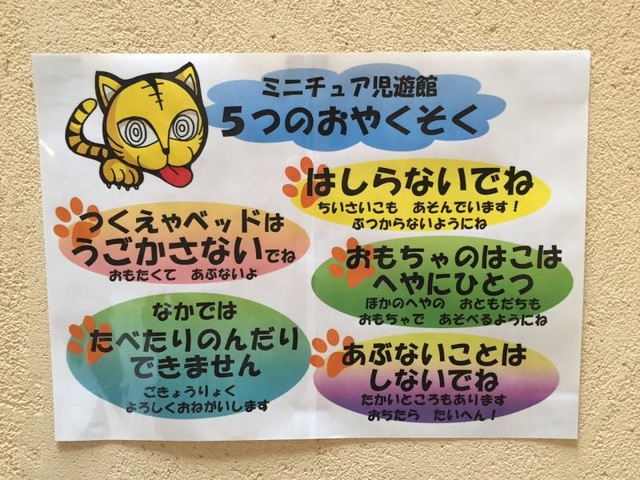 ミニチュア児遊館
５つのおやくそく
はしらないでね
ちいさいこも あそんでいます！
ぶつからないようにね
つくえやベッドは
うごかさないでね
おもたくて あぶないよ
おもちゃのはこは
へやにひとつ
ほかのへやの おともだちも
おもちゃで あそべるようにね
なかでは
たべたりのんだり
できません
ごきょうりょく
よろしくおねがいします
あぶないことは
しないでね
たかいところもあります
おちたら たいへん！